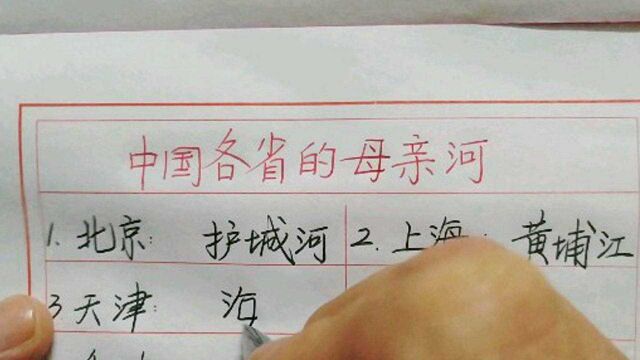 中国各省的母亲河
1. 北京: 护城河 2. 上海: 黄埔江
3 天津: